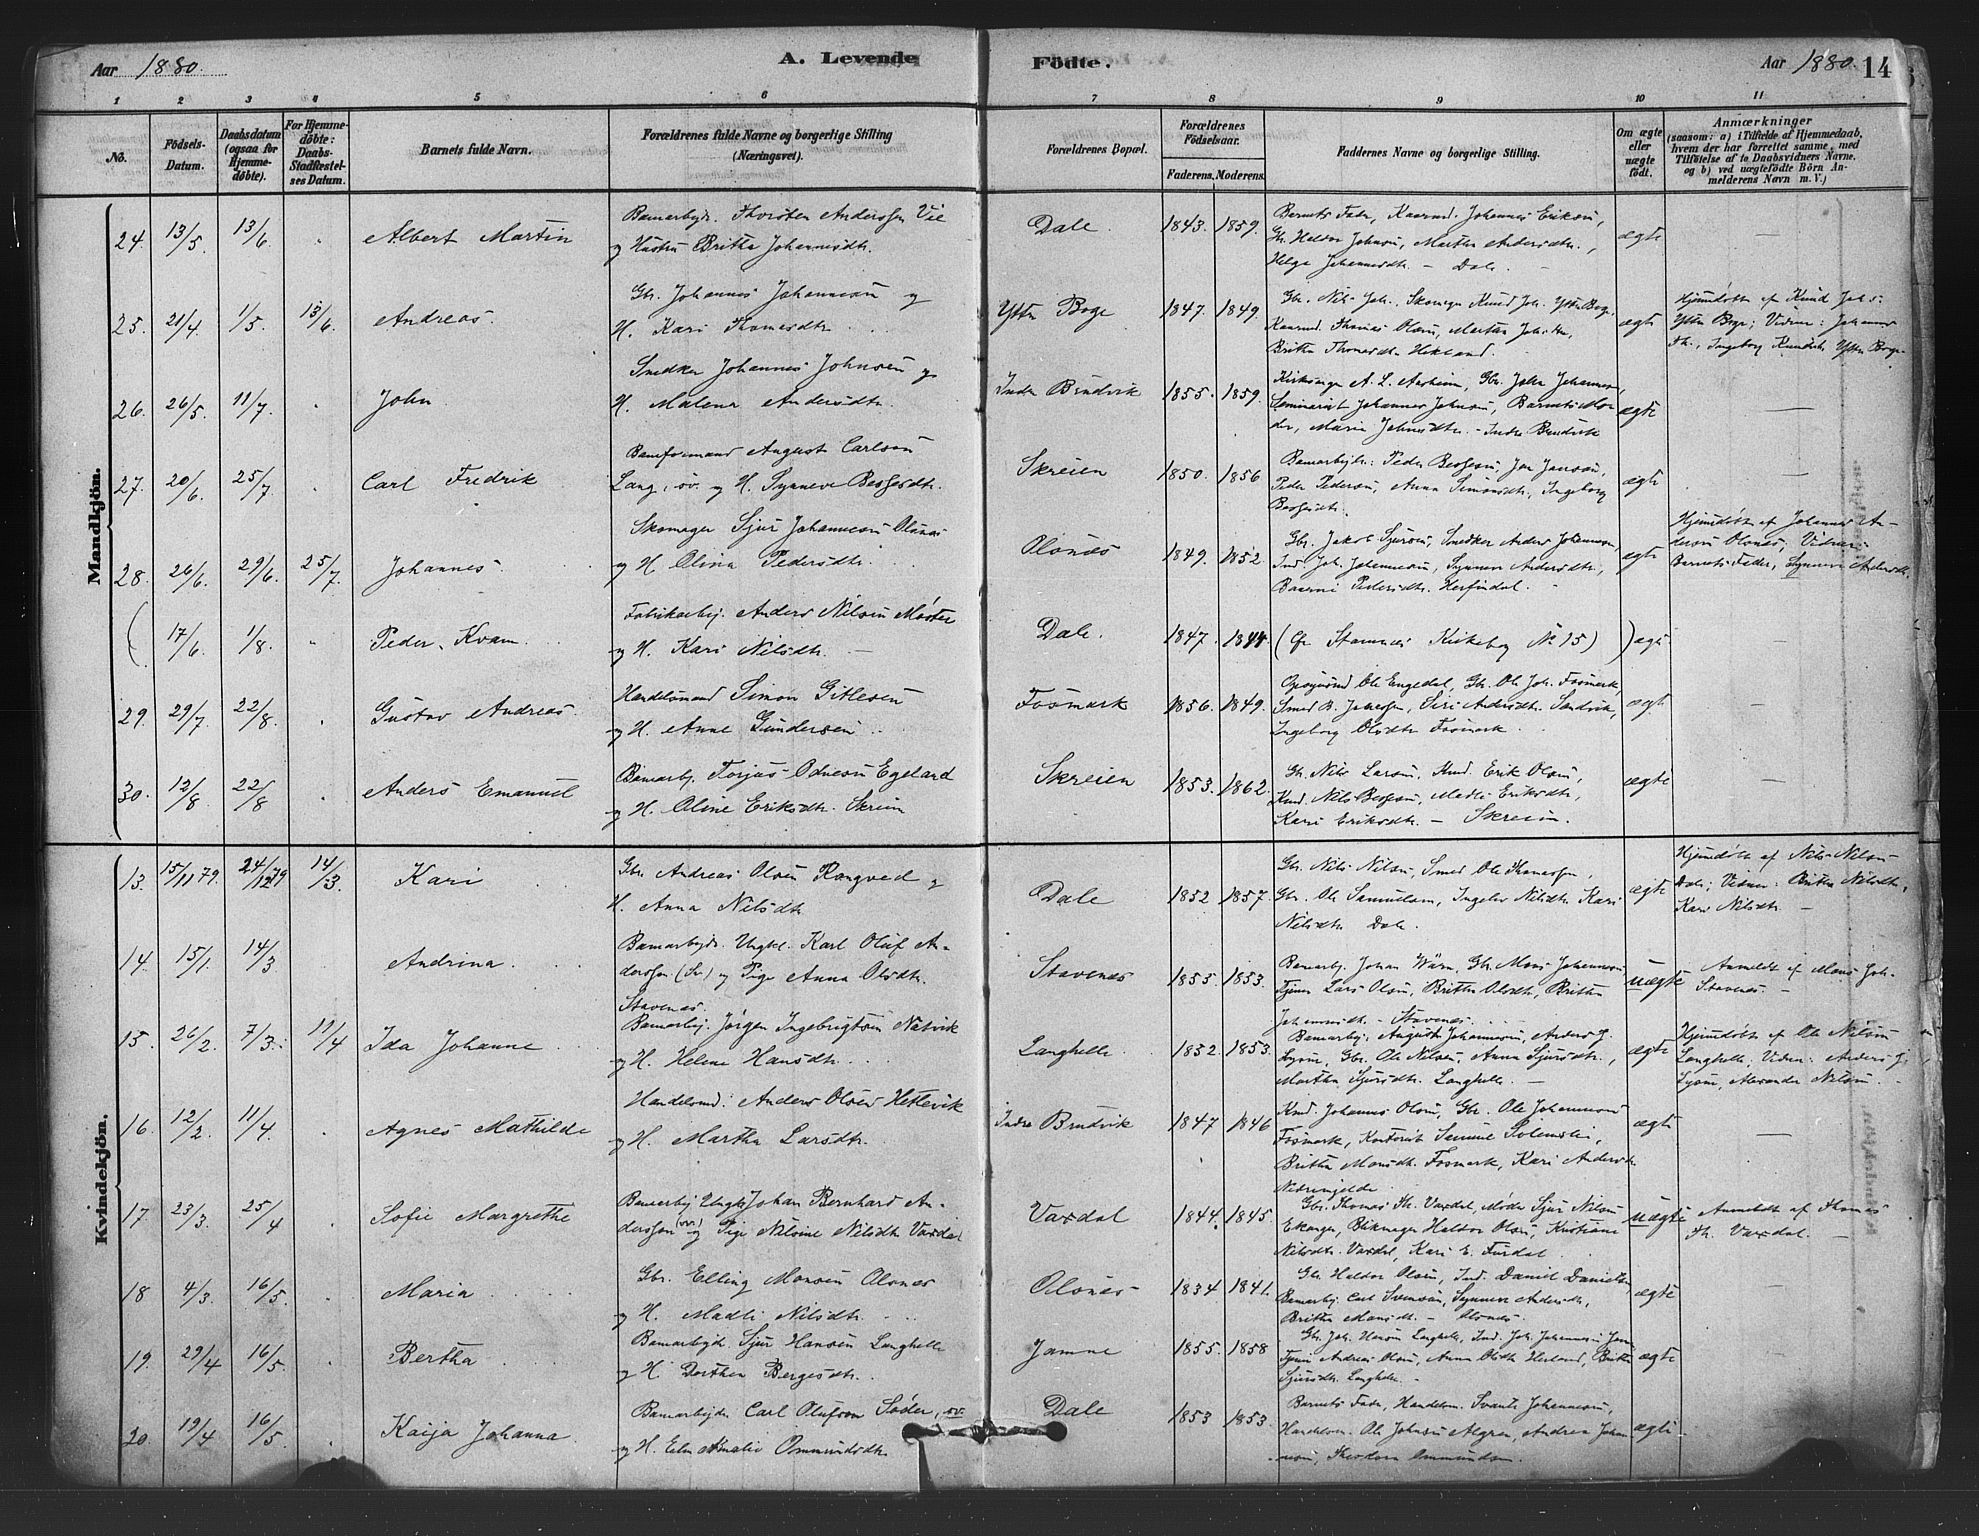 Aar 1880. A. Levende Födte. Aar 1880. 14
1 2 3 4 5 6 7 8 9 10 11
No. Födsels-Datum. Daabsdatum (ogsaa for Hjemme-döbte). For Hjemme-döbte: Daabs-Stadfæstel-ses Datum. Barnets fulde Navn. Forældrenes fulde Navne og borgerlige Stilling (Næringsvei). Forældrenes Bopæl. Forældrenes Födselsaar. Faderens. Moderens. Faddernes Navne og borgerlige Stilling. Om ægte eller uægte födt. Anmærkninger (saasom: a) i Tilfælde af Hjemmedaab, hvem der har forrettet samme, med Tilföielse af to Daabsvidners Navne, og b) ved uægtefödte Börn An-melderens Navn m. V.)
Mandkjön.
24. 13/5 13/6 Albert Martin
Banearbejdr. Thorsten Anderssen Vie
og Hustru Britha Johannesdtr.
Dale. 1843. 1859.
Barnets Fader, Kaarmd. Johannes Erikssen,
Gbr. Haldor Johnsen, Martha Andersdtr.,
Helga Johannesdtr. — Dale. —
ægte —
25. 21/4 1/5. 13/6. Andreas.
Gbr. Johannes Johannesen og
H. Kari Thomasdtr.
Yttre Boge 1847. 1849.
Gbr. Nils Joh., Skomager Knud Joh. Yttre Boge,
Kaarmd. Thomas Olsen, Martha Johsdtr.,
Britha Thomasdtr. Hekland.
ægte
Hjemdøbt af Knud Johs.
Yttre Boge; Vidner: Johannes
Th., Ingeborg Knudsdtr. Yttre Boge.
26. 26/5 11/7. John
Snedker Johannes Johnsen og
H. Malena Andersdtr.
Indre Brudvik 1855. 1859.
Kirkesanger A. L. Aasheim, Gbr. John Johannesen,
Seminarist Johannes Johnsen, Barnets Mo-
der, Maria Johnsdtr. - Indre Brudvik
ægte —
27. 20/6. 25/7 Carl Fredrik
Baneformand August Carlsen
Lang, sv. og H. Synneve Børgesdtr.
Skreien 1850. 1856
Banearbejdr: Peder Børgesen, Jon Jonsen,
Peder Pedersen, Anna Simonsdtr., Ingeborg
Børgesdtr.
ægte —
28. 26/6. 29/6. 25/7. Johannes.
Skomager Sjur Johannesen Olsnes
og H. Olina Pedersdtr.
Olsnæs 1849. 1852
Gbr. Jakob Sjursen, Snedker Anders Johannesen,
Ind. Joh. Johannesen, Synneve Andersdtr.,
Pedersdtr. Herfindal.
ægte
Hjemdøbt af Johannes An-
dersen Olsnes, Vidner:
Barnets Fader, Synneve Andersdtr.
( 17/6 1/8. Peder Kvam
Fabrikarbej. Anders Nilsen Møster
og H. Kari Nilsdtr. —
Dale. 1847. 1844
(Cfr Stamnes Kirkebog No 15) ) ægte
29. 29/7. 22/8. Gustav Andreas.
Handelsmand Simon Gitlesen
og H. Anne Gundersen
Fosmark 1856. 1849.
Opsynsmd Ole Engedal, Gbr. Ole Joh. Fosmark,
Smed R. Jakobsen, Siri Andersdtr. Sandvik,
Ingeborg Olsdtr. Fosmark.
ægte —
30. 12/8 22/8 Anders Emanuel
Banearbj. Torjus Odnesen Egeland
og H. Oline Eriksdtr. Skreien
Skreien 1853. 1862.
Gbr. Nils Larsen, Kmd. Erik Olsen,
Kmd. Nils Børgesen, Madli Eriksdtr.,
Kari Eriksdtr. — Skreien.
ægte —
Kvindekjön.
13. 15/11 79. 24/12 79 14/3. Kari
Gbr. Andreas Olsen Rongved og
H. Anna Nilsdtr
Dale 1852 1857.
Gbr. Nils Nilsen, Smed Ole Thomassen,
Gbr. Ole Samuelsen, Ingebor Nilsdtr. Kari
Nilsdtr. Dale.
ægte
Hjemdøbt af Nils Nilsen
Dale; Vidner: Britha Nilsdtr.,
Kari Nilsdtr. —
14. 15/1. 14/3 Andrina.
Banearbejdr. Ungkl. Karl Oluf An-
derssen (Sv.) og Pige Anna Olsdtr.
Stavenes.
Stavenæs 1855. 1853.
Banearbj. Johan Wärn, Gbr. Mons Johannesen,
Tjener Lars Olsen, Britha Olsdtr., Britha
Johannesdtr. — Stavenes.
uægte
Anmeldt af Mons Joh.
Stavenes. —
15. 26/2. 7/3. 11/4 Ida Johanne
Banearbej. Jørgen Ingebrigtsen Natvik
og H. Helene Hansdtr.
Langhelle 1852. 1853.
Banearbej. August Johannesen, Anders J.
Lysne, Gbr. Ole Nilsen, Anna Sjursdtr.,
Martha Sjursdtr. Langhelle. —
ægte
Hjemdøbt af Ole Nilsen
Langhelle, Vidner: Anders J.
Lysne, Alexander Nilsen.
16. 12/2. 11/4. Agnes Mathilde
Handelsmd. Anders Olsen Hetlevik
og H. Martha Larsdtr.
Indre Brudvik 1847 1846
Kmd. Johannes Olsen, Gbr. Ole Johannesen
Fosmark, Kontorist Samuel Solemslie,
Britha Monsdtr. Fosmark, Kari Andersdtr.
Nedreugjelde
ægte —
17. 23/3. 25/4 Sofie Margrethe
Banearbej. Ungkl. Johan Bernhard An-
derssen (sv.) og Pige Nilsine Nilsdtr. Vaxdal
Vaxdal 1844. 1845.
Gbr. Thomas Th. Vaxdal, Møller Sjur Nilsen
Ekanger, Blikmager Haldor Olsen, Kristiane
Nilsdtr. Vaxdal, Kari E. Furdal.
uægte
Anmeldt af Thomas
Th. Vaxdal. —
18 4/3. 16/5. Maria
Gbr. Elling Monsen Olsnes
og H. Madli Nilsdtr.
Olsnæs 1834 1841.
Gbr. Haldor Olsen, Ind. Daniel Danielsen,
Banearbej. Carl Svensen, Synneve Andersdtr.,
Britha Monsdtr. — Olsnes.
ægte —
19. 29/4 16/5. Bertha
Banearbejdr. Sjur Hansen Langhelle
og H. Dorthea Bergesdtr.
Jamne 1855. 1858
Gbr. Joh. Hansen Langhelle, Ind. Joh. Johannesen Jamne
Tjener Andreas Olsen, Anna Olsdtr. Herland, Britha
Sjursdtr. Langhelle. —
ægte —
20. 19/4 16/5. Kaija Johanna
Banearbejdr Carl Olufson Söder, sv.
og H. Elen Amalie Ommundsdtr
Dale 1853 1853.
Barnets Fader, Handelsm. Svante Johannesen,
Handelsm. Ole Johnsen Algren, Andrea Johan-
nesen, Theodora Ommundsen.
ægte —